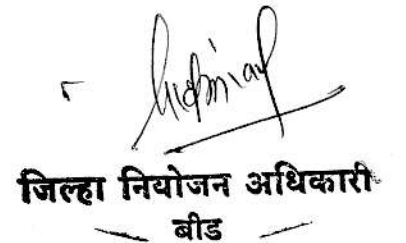 जिल्हा नियोजन अधिकारी
बीड